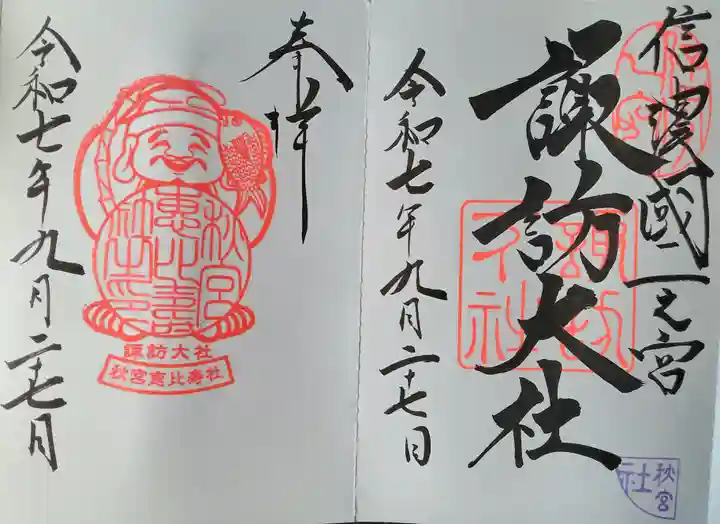 信濃國一之宮
諏訪大社
令和七年九月二十七日
諏訪大社
秋宮
社
奉拝
秋宮
恵比寿
社之印
諏訪大社
秋宮恵比寿社
令和七年九月二十七日